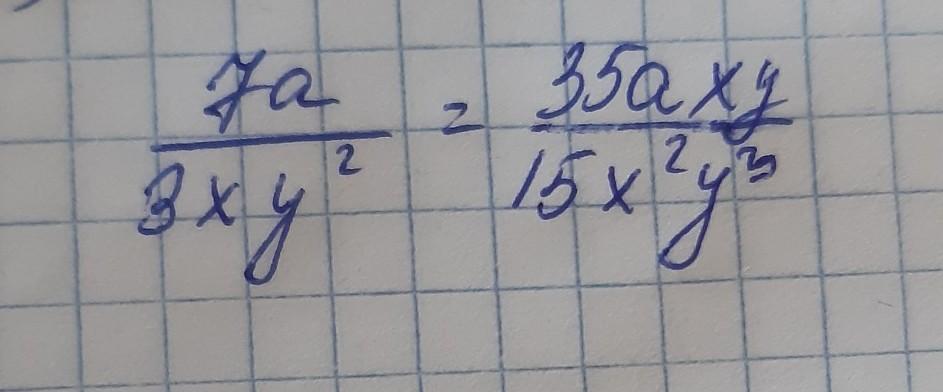 7a/3xy² = 35axy/15x²y³